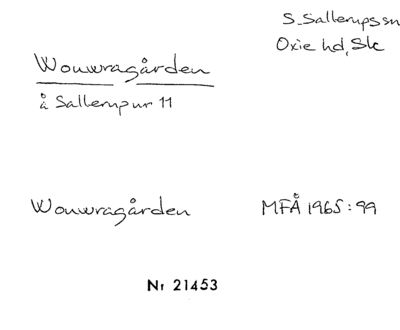 S. Sallerups sn
Oxie hd, Sk
Wouwragården
å Sallerup nr 11
Wouwragården MFÅ 1965:99
Nr 21453